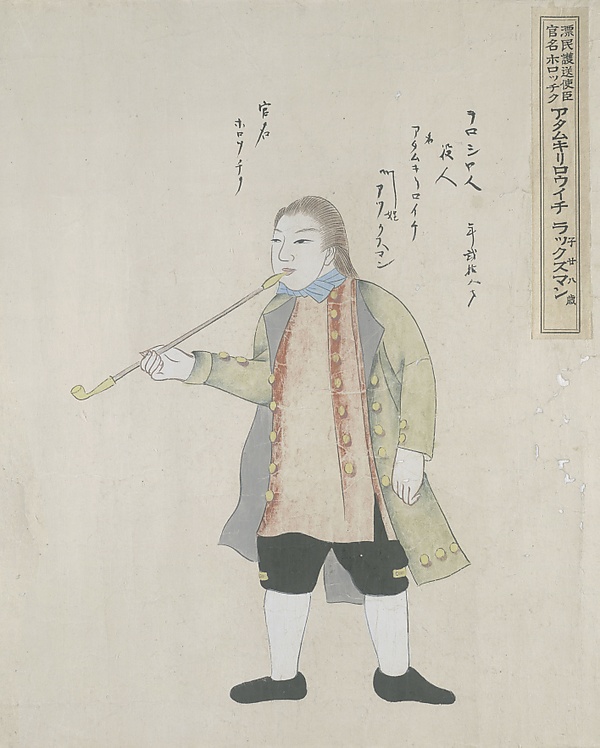 漂民護送使臣
官名 ホロッチク
アタムキリロウイチ ラックズマン
子廿八歳
ヲロシヤ人
役人
年弐拾八才
名
アタムキリロイチ
姓
ラックスマン
官名
ホロッチク